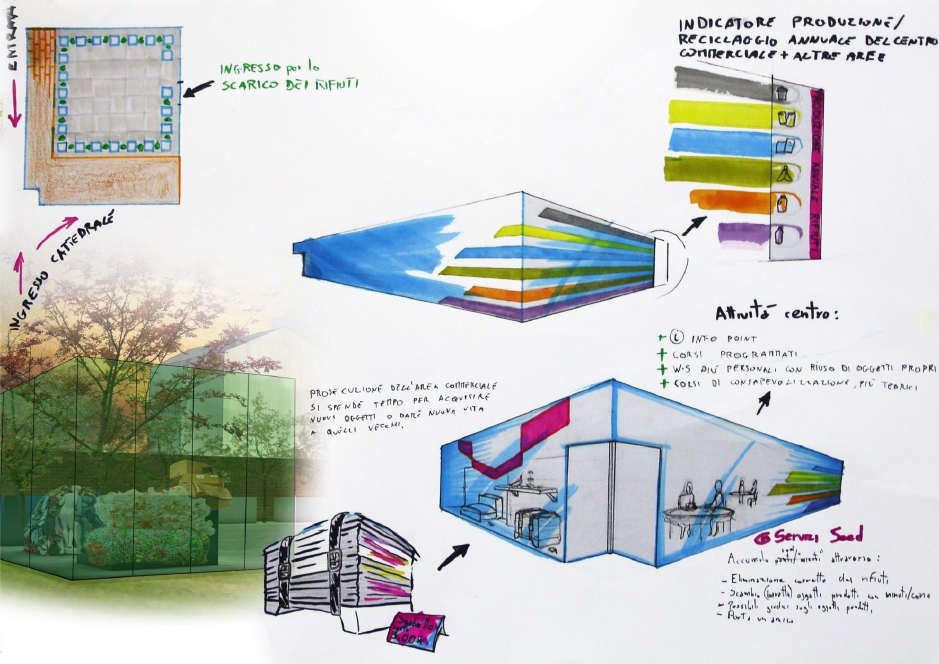 ENTRATA
INGRESSO per lo
SCARICO DEI RIFIUTI
INGRESSO CATTEDRALE
INDICATORE PRODUZIONE/
RECICLAGGIO ANNUALE DEL CENTRO
COMMERCIALE + ALTRE AREE
PRODUZIONE ANNUALE RIFIUTI
Attività centro:
+ (i) INFO POINT
+ CORSI PROGRAMMATI
+ W.S PIÙ PERSONALI CON RIUSO DI OGGETTI PROPRI
+ CORSI DI CONSAPEVOLIZZAZIONE, PIÙ TEORICI
PROSECUZIONE DELL'AREA COMMERCIALE
SI SPENDE TEMPO PER ACQUISIRE
NUOVI OGGETTI O DARE NUOVA VITA
A QUELLI VECCHI.
Servizi Seed
Accumulo attraverso:
- Eliminazione corretta dei rifiuti
- Scambio (baratto) oggetti prodotti con
- Possibili giudizi sugli oggetti prodotti,
- Porta un amico